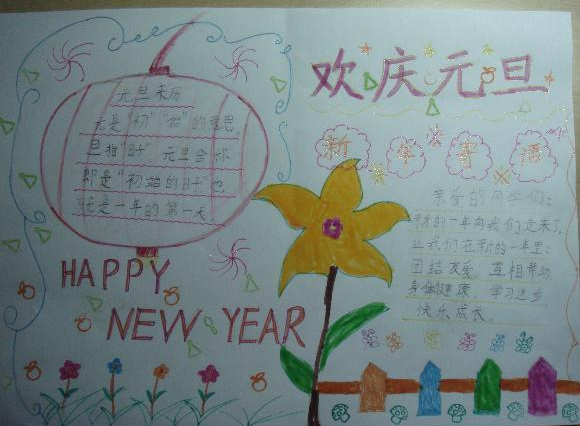 元旦来历
元是"初""始"的意思,
旦指"日子"元旦合称
即是"初始的日子"也
就是一年的第一天
HAPPY
NEW YEAR
欢庆元旦
新年寄语
亲爱的同学们:
新的一年向我们走来了,
让我们在新的一年里:
团结友爱、互相帮助
身体健康、学习进步
快乐成长。